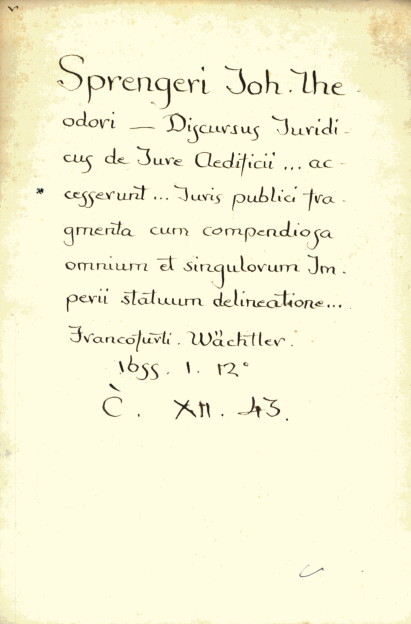 Sprengeri Joh. The-
odori — Discursus Juridi-
cus de Jure Aedificii ... ac-
* cesserunt ... Juris publici fra-
gmenta cum compendiosa
omnium et singulorum Im-
perii statuum delineatione...
Francofurti. Wächtler.
1655. 1. 12°
Č. XII. 43.